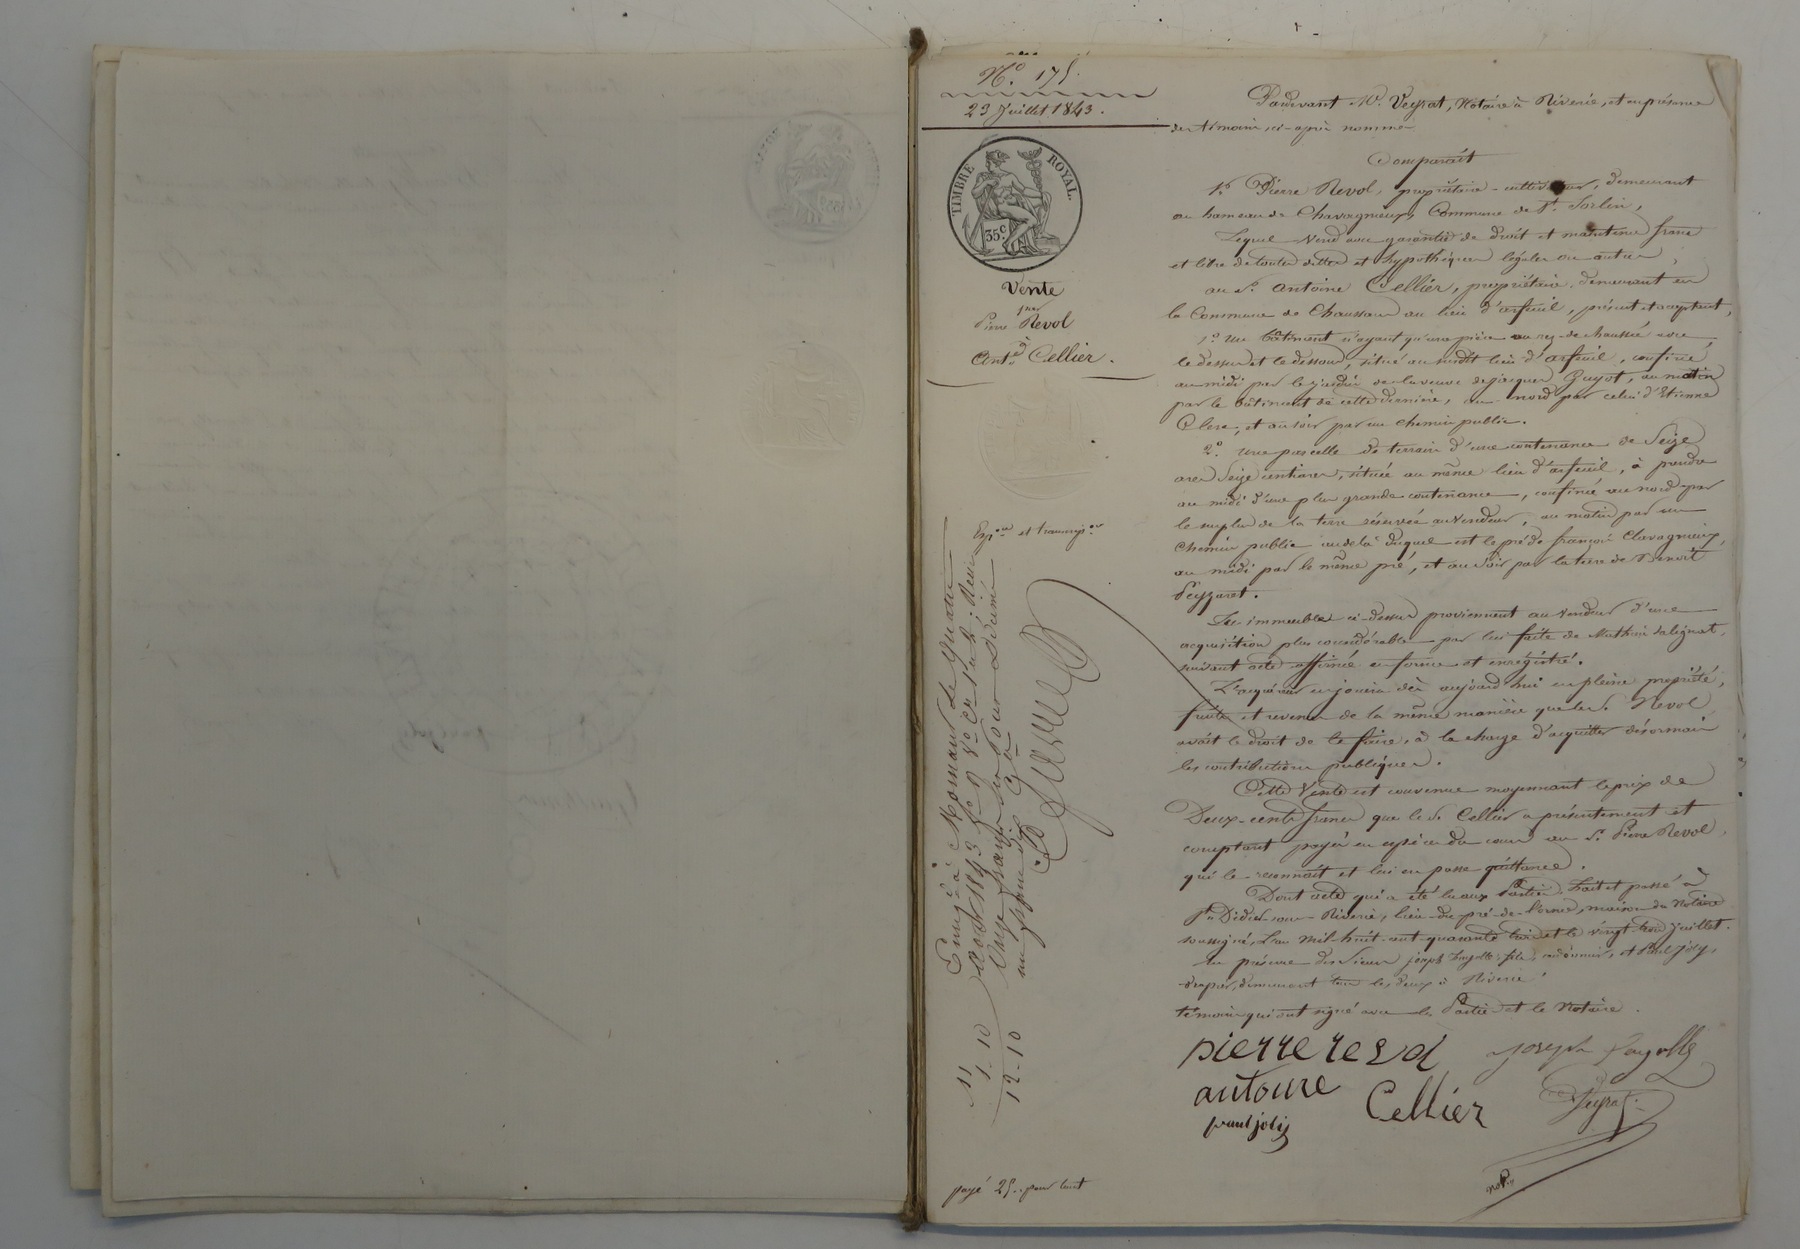 N.o 175.
23 Juillet 1843.
TIMBRE ROYAL.
35c.
Vente
par
Pierre Revol
à
Ant.e Cellier.
Exp.on et transcrip.on
Enreg.é à Mornant le quatre
août 1843 f.o
onze francs
un franc dix c.
11
1-10
12-10
payé 25.. pour tout
Pardevant M.e Veyrat, Notaire à Riverie, et en présence
des témoins ci-après nommés
Comparaît
S.r Pierre Revol, propriétaire-cultivateur, demeurant
au hameau de Chavagnieux, Commune de S.t Sorlin,
Lequel Vend avec garantie de droit et maintenue franc
et libre de toutes dettes et hypothèques légales ou autres,
au S.r Antoine Cellier, propriétaire, demeurant en
la Commune de Chaussan au lieu d'arfeuil, présent et acceptant,
1.o Un bâtiment n'ayant qu'une pièce au rez-de-chaussée avec
le dessus et le dessous, situé au susdit lieu d'arfeuil, confiné
au midi par le jardin de la veuve de jacques Guyot, au matin
par le bâtiment de cette dernière, au nord par celui d'Etienne
Clerc, et au soir par un chemin public.
2.o Une parcelle de terrain d'une contenance de Seize
ares Seize centiares, située au même lieu d'arfeuil, à prendre
au midi d'une plus grande contenance, confinée au nord par
le surplus de la terre réservée au Vendeur, au matin par un
chemin public au delà duquel est le pré de françois Chavagnieux,
au midi par le même pré, et au soir par la terre de Benoît
Peyzaret.
Les immeubles ci-dessus proviennent au Vendeur d'une
acquisition plus considérable par lui faite de Mathieu Salignat,
suivant acte affirmé en forme et enrégistré.
L'acquéreur en jouira dès aujourd'hui en pleine propriété,
fruits et revenus de la même manière que le S.r Revol
avait le droit de le faire, à la charge d'acquitter désormais
les contributions publiques.
Cette Vente est convenue moyennant le prix de
Deux-cents francs que le S.r Cellier a présentement et
comptant payés en espèces du cours au S.r Pierre Revol,
qui le reconnaît et lui en passe quittance.
Dont acte qui a été lu aux Parties. Fait et passé à
S.t Didier-sous-Riverie, lieu du pré-de-l'orme, maison du Notaire
soussigné, L'an mil-huit-cent-quarante trois et le vingt trois juillet.
En présence des Sieurs joseph fayolle fils, et Paul joly,
drapier, demeurant tous les deux à Riverie
témoins qui ont signé avec les Parties et le Notaire.
pierre revol
Joseph fayolle
antoine Cellier
Veyrat
paul joly
not.re